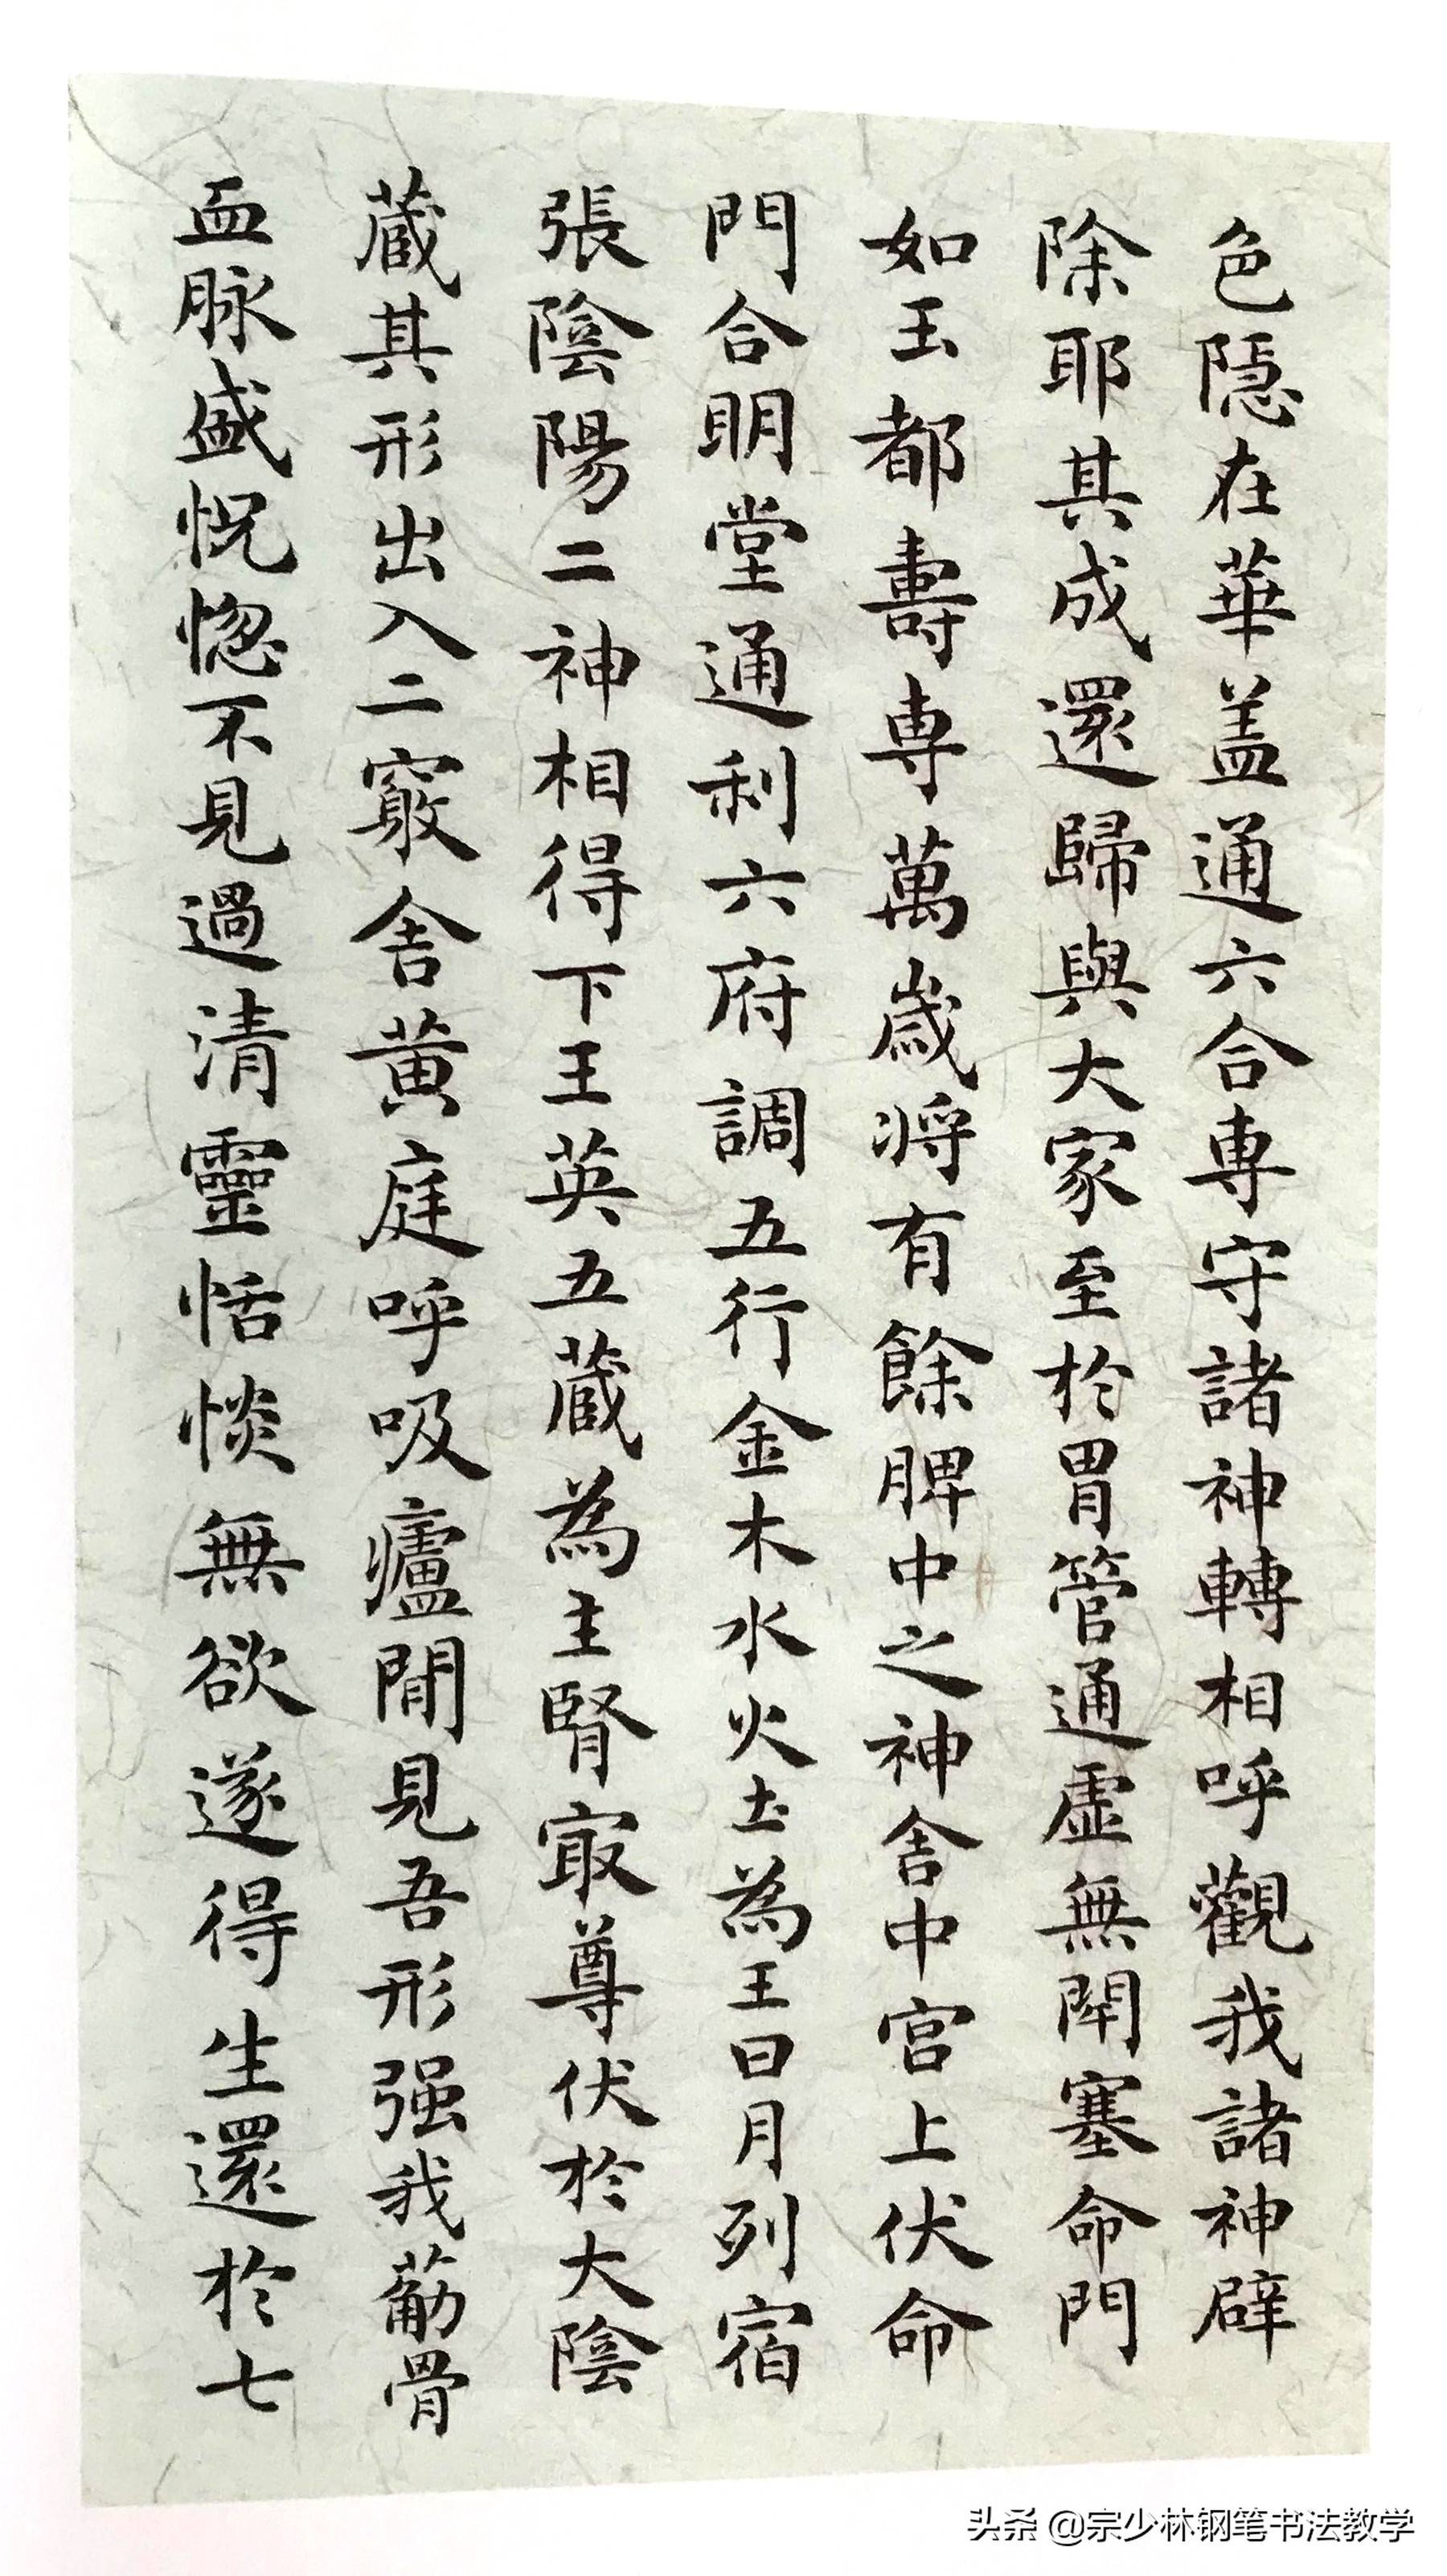 色隱在華盖通六合專守諸神轉相呼觀我諸神辟
除耶其成還歸與大家至於胃管通虛無閇塞命門
如玉都壽專萬歲将有餘脾中之神舍中宮上伏命
門合明堂通利六府調五行金木水火土為王日月列宿
張陰陽二神相得下玉英五蔵為主腎冣尊伏於大陰
蔵其形出入二竅舍黃庭呼吸廬間見吾形强我筋骨
血脉盛怳惚不見過清靈恬惔無欲遂得生還於七
头条 @宗少林钢笔书法教学